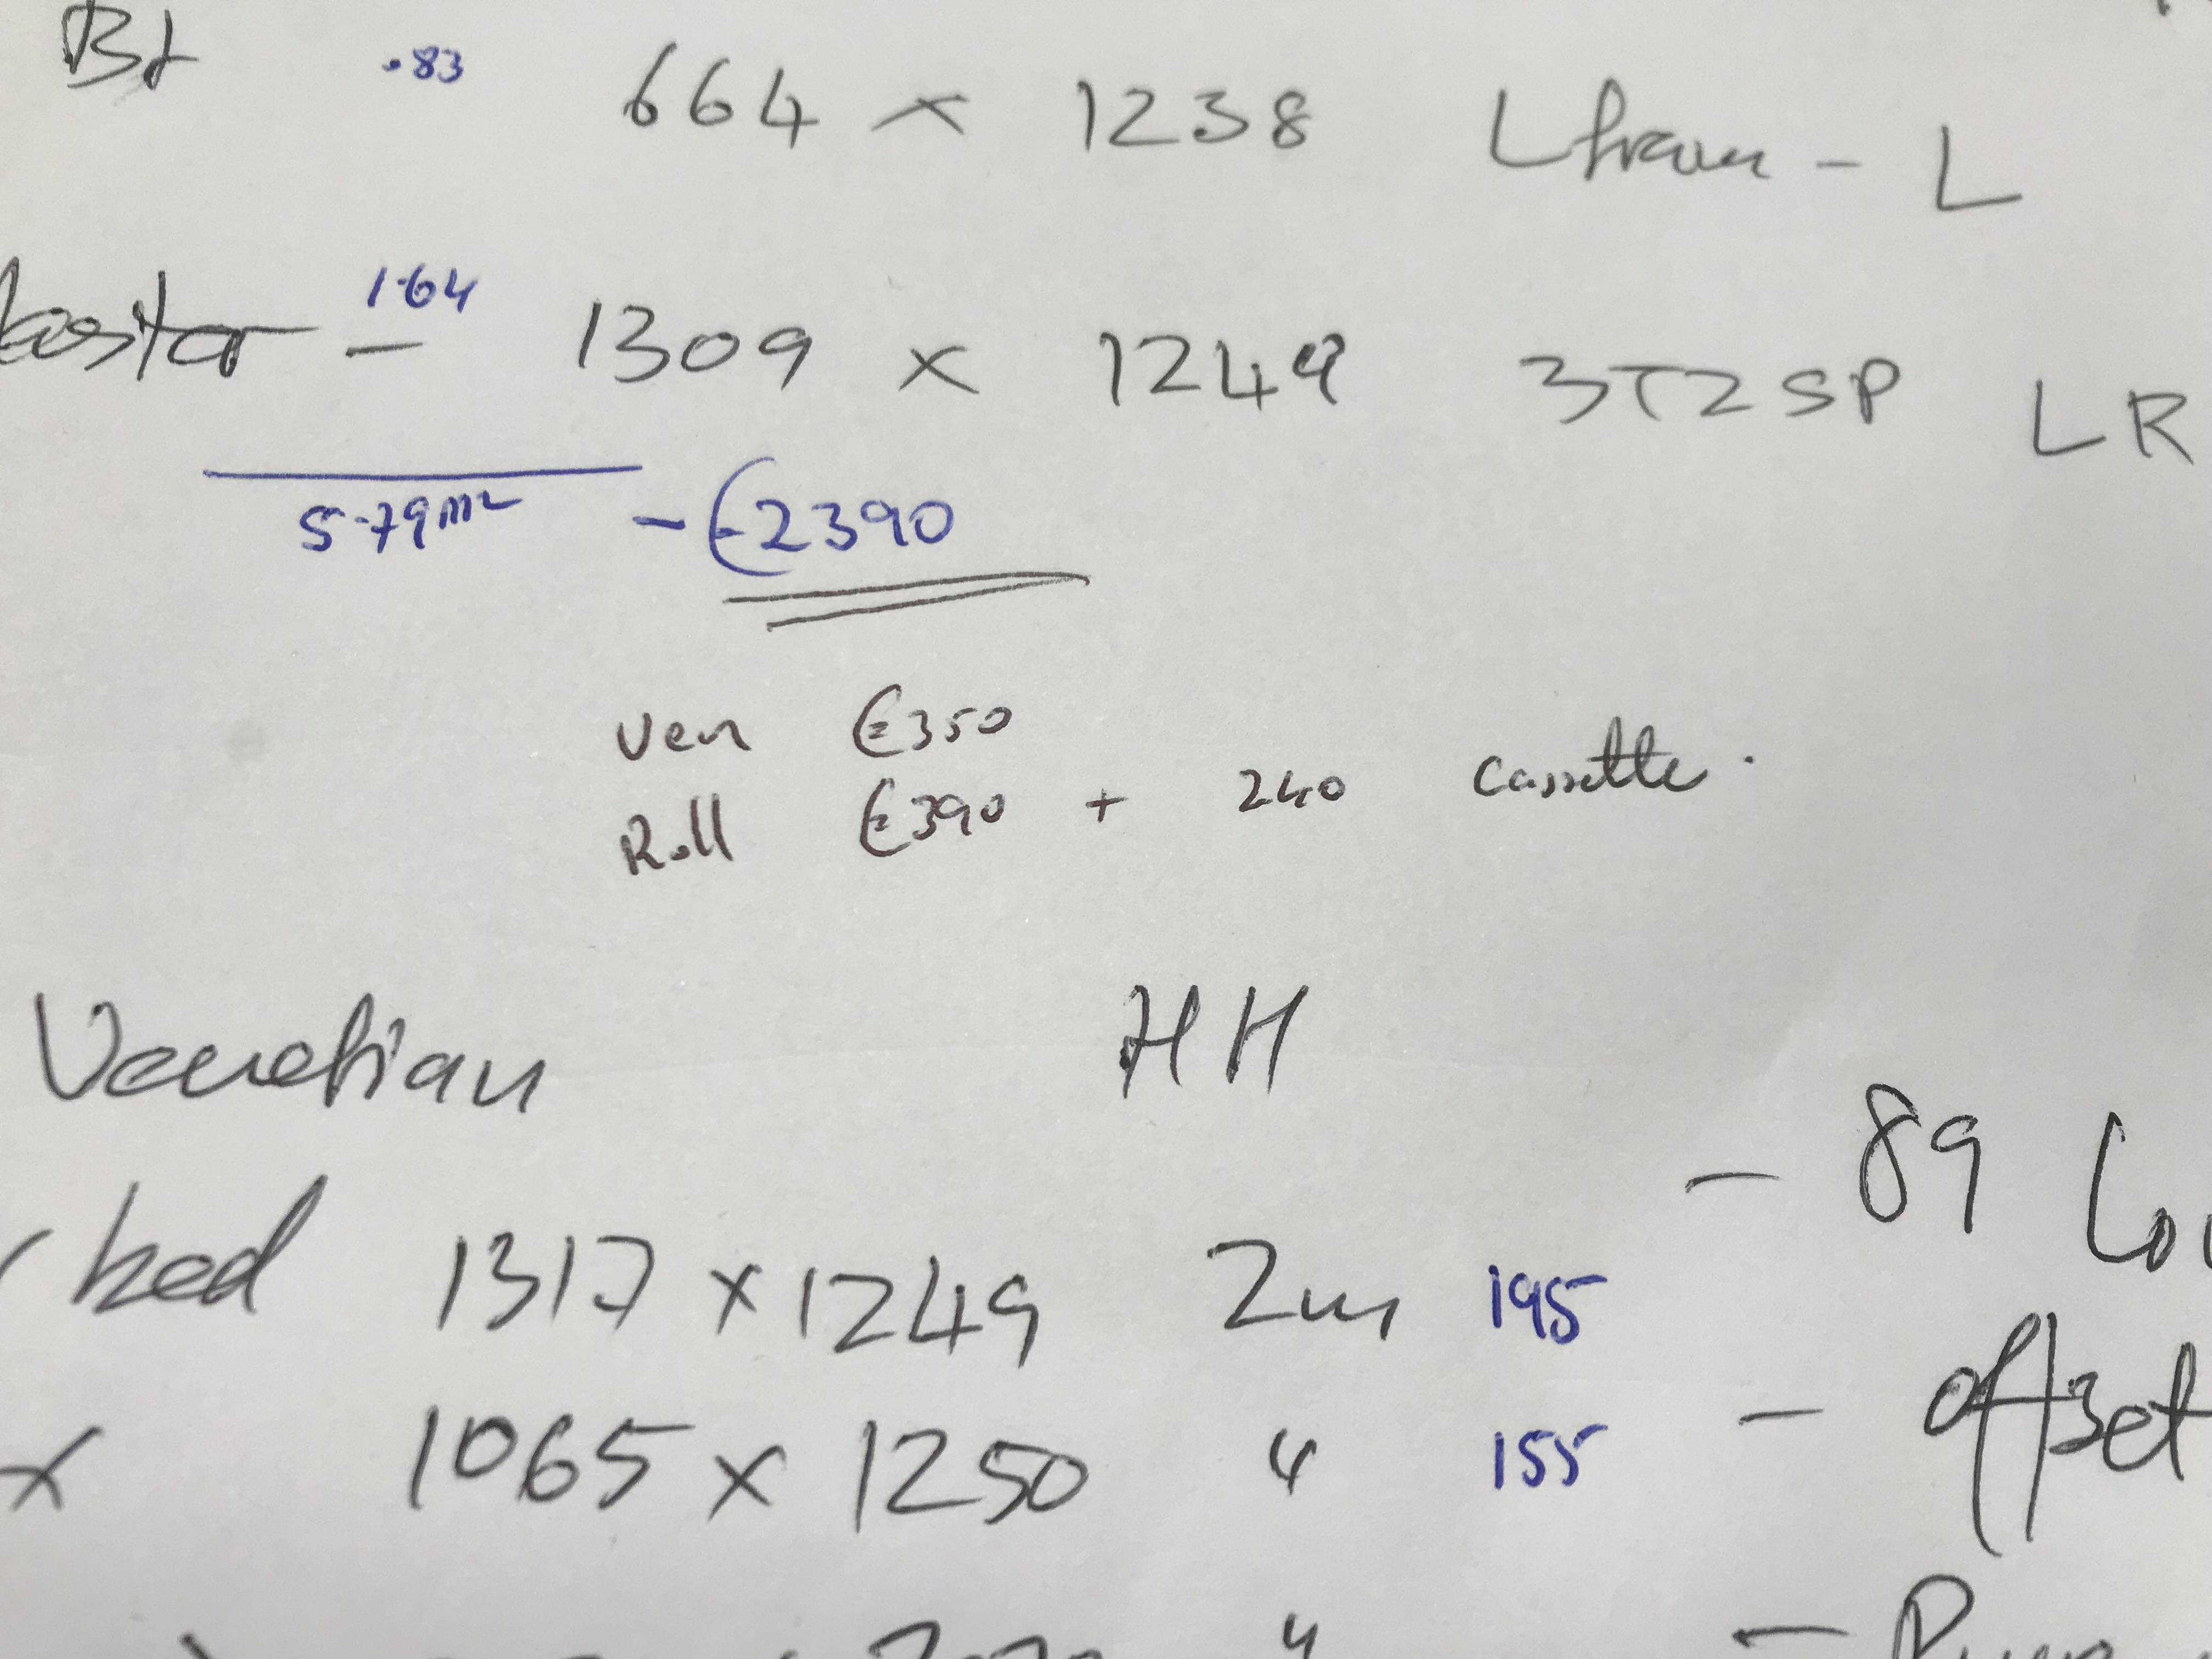 Bt .83 664 x 1238 L fram - L
1.64 - 1309 x 1249 3T2SP LR
5.79m² - €2390
Ven €350
Roll €390 + 240 cassette.
Venetian HH
- 89
bed 1317 x 1249 2m 195
x 1065 x 1250 " 155 - offset
" -